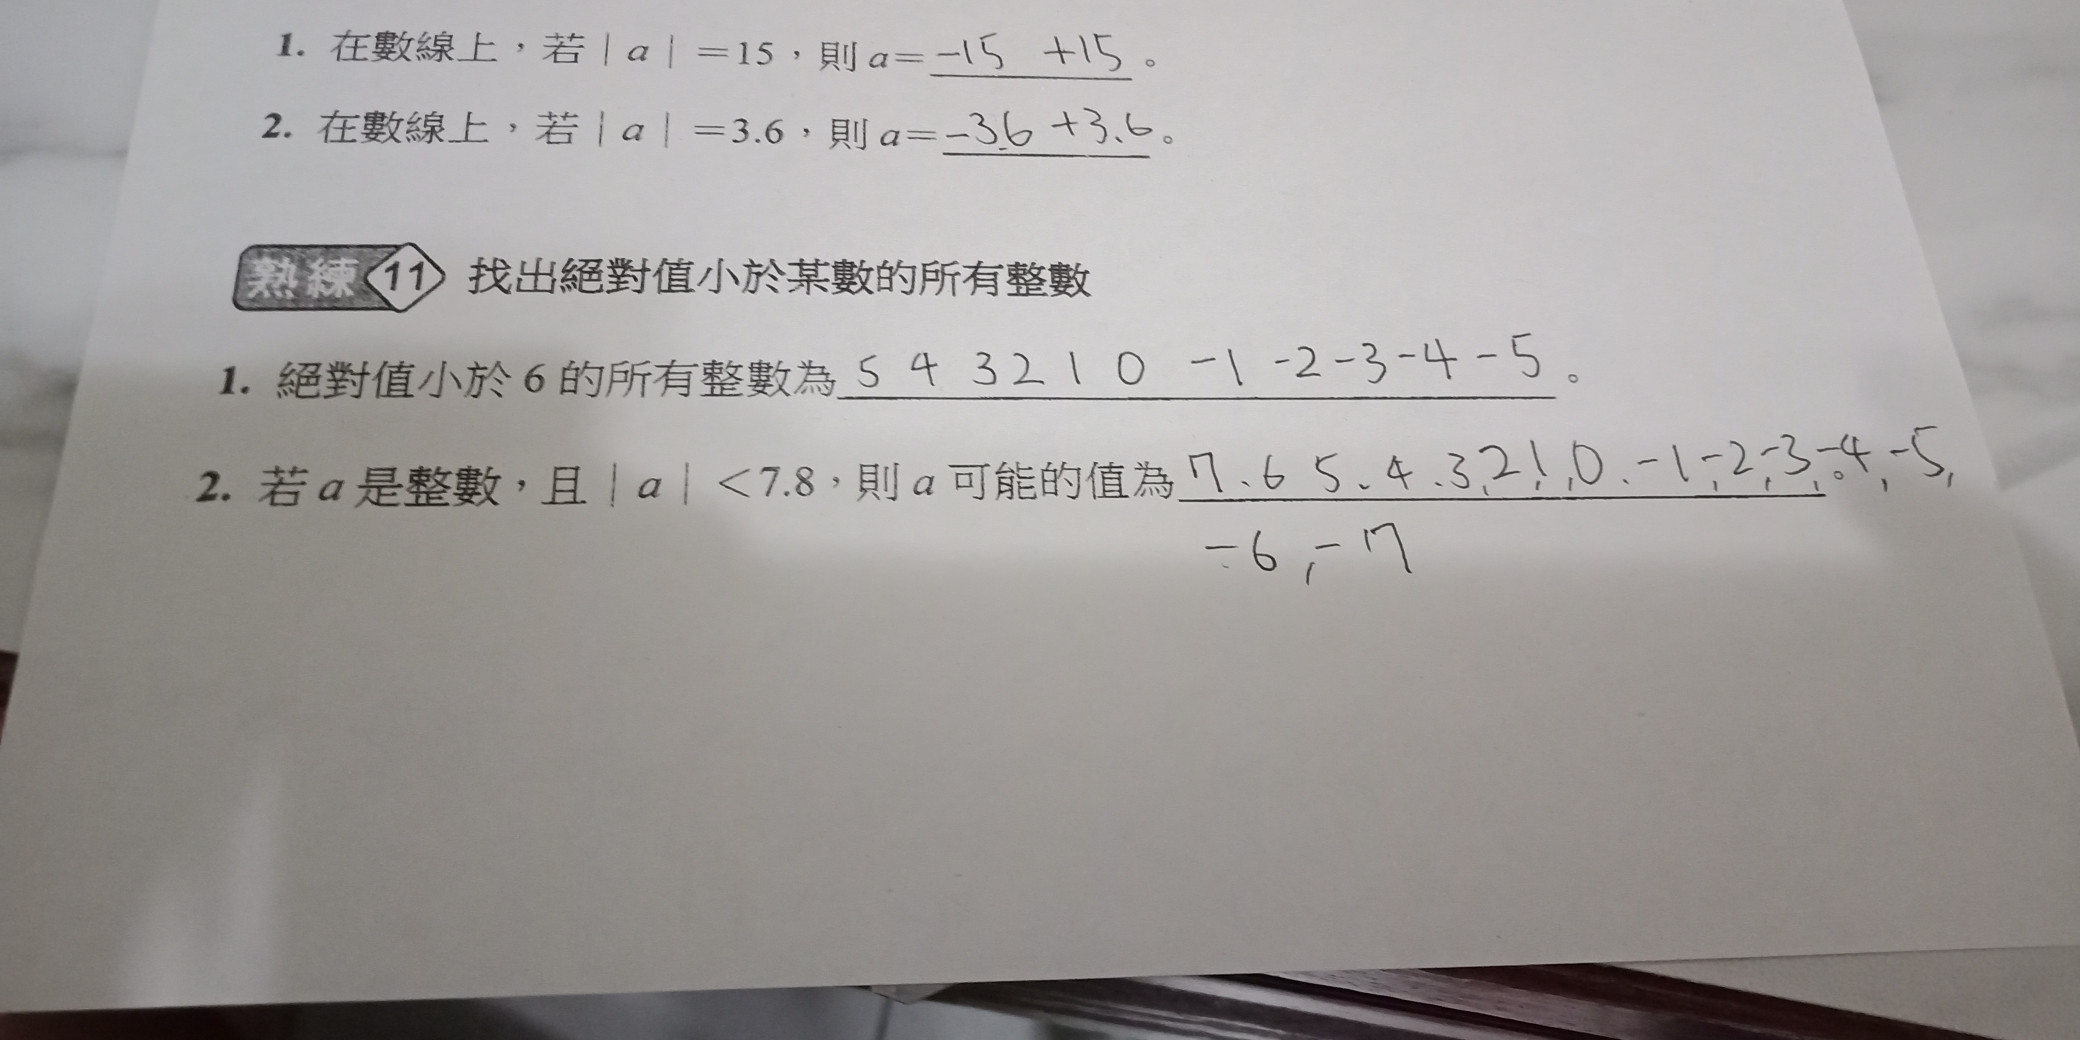 1. 在數線上，若｜a｜=15，則a=-15 +15。
2. 在數線上，若｜a｜=3.6，則a=-3.6 +3.6。
熟練 11 找出絕對值小於某數的所有整數
1. 絕對值小於6的所有整數為 5 4 3 2 1 0 -1 -2 -3 -4 -5。
2. 若a是整數，且｜a｜<7.8，則a可能的值為 7、6 5、4、3,2,1,0、-1,-2,-3,-4,-5,。
-6,-7